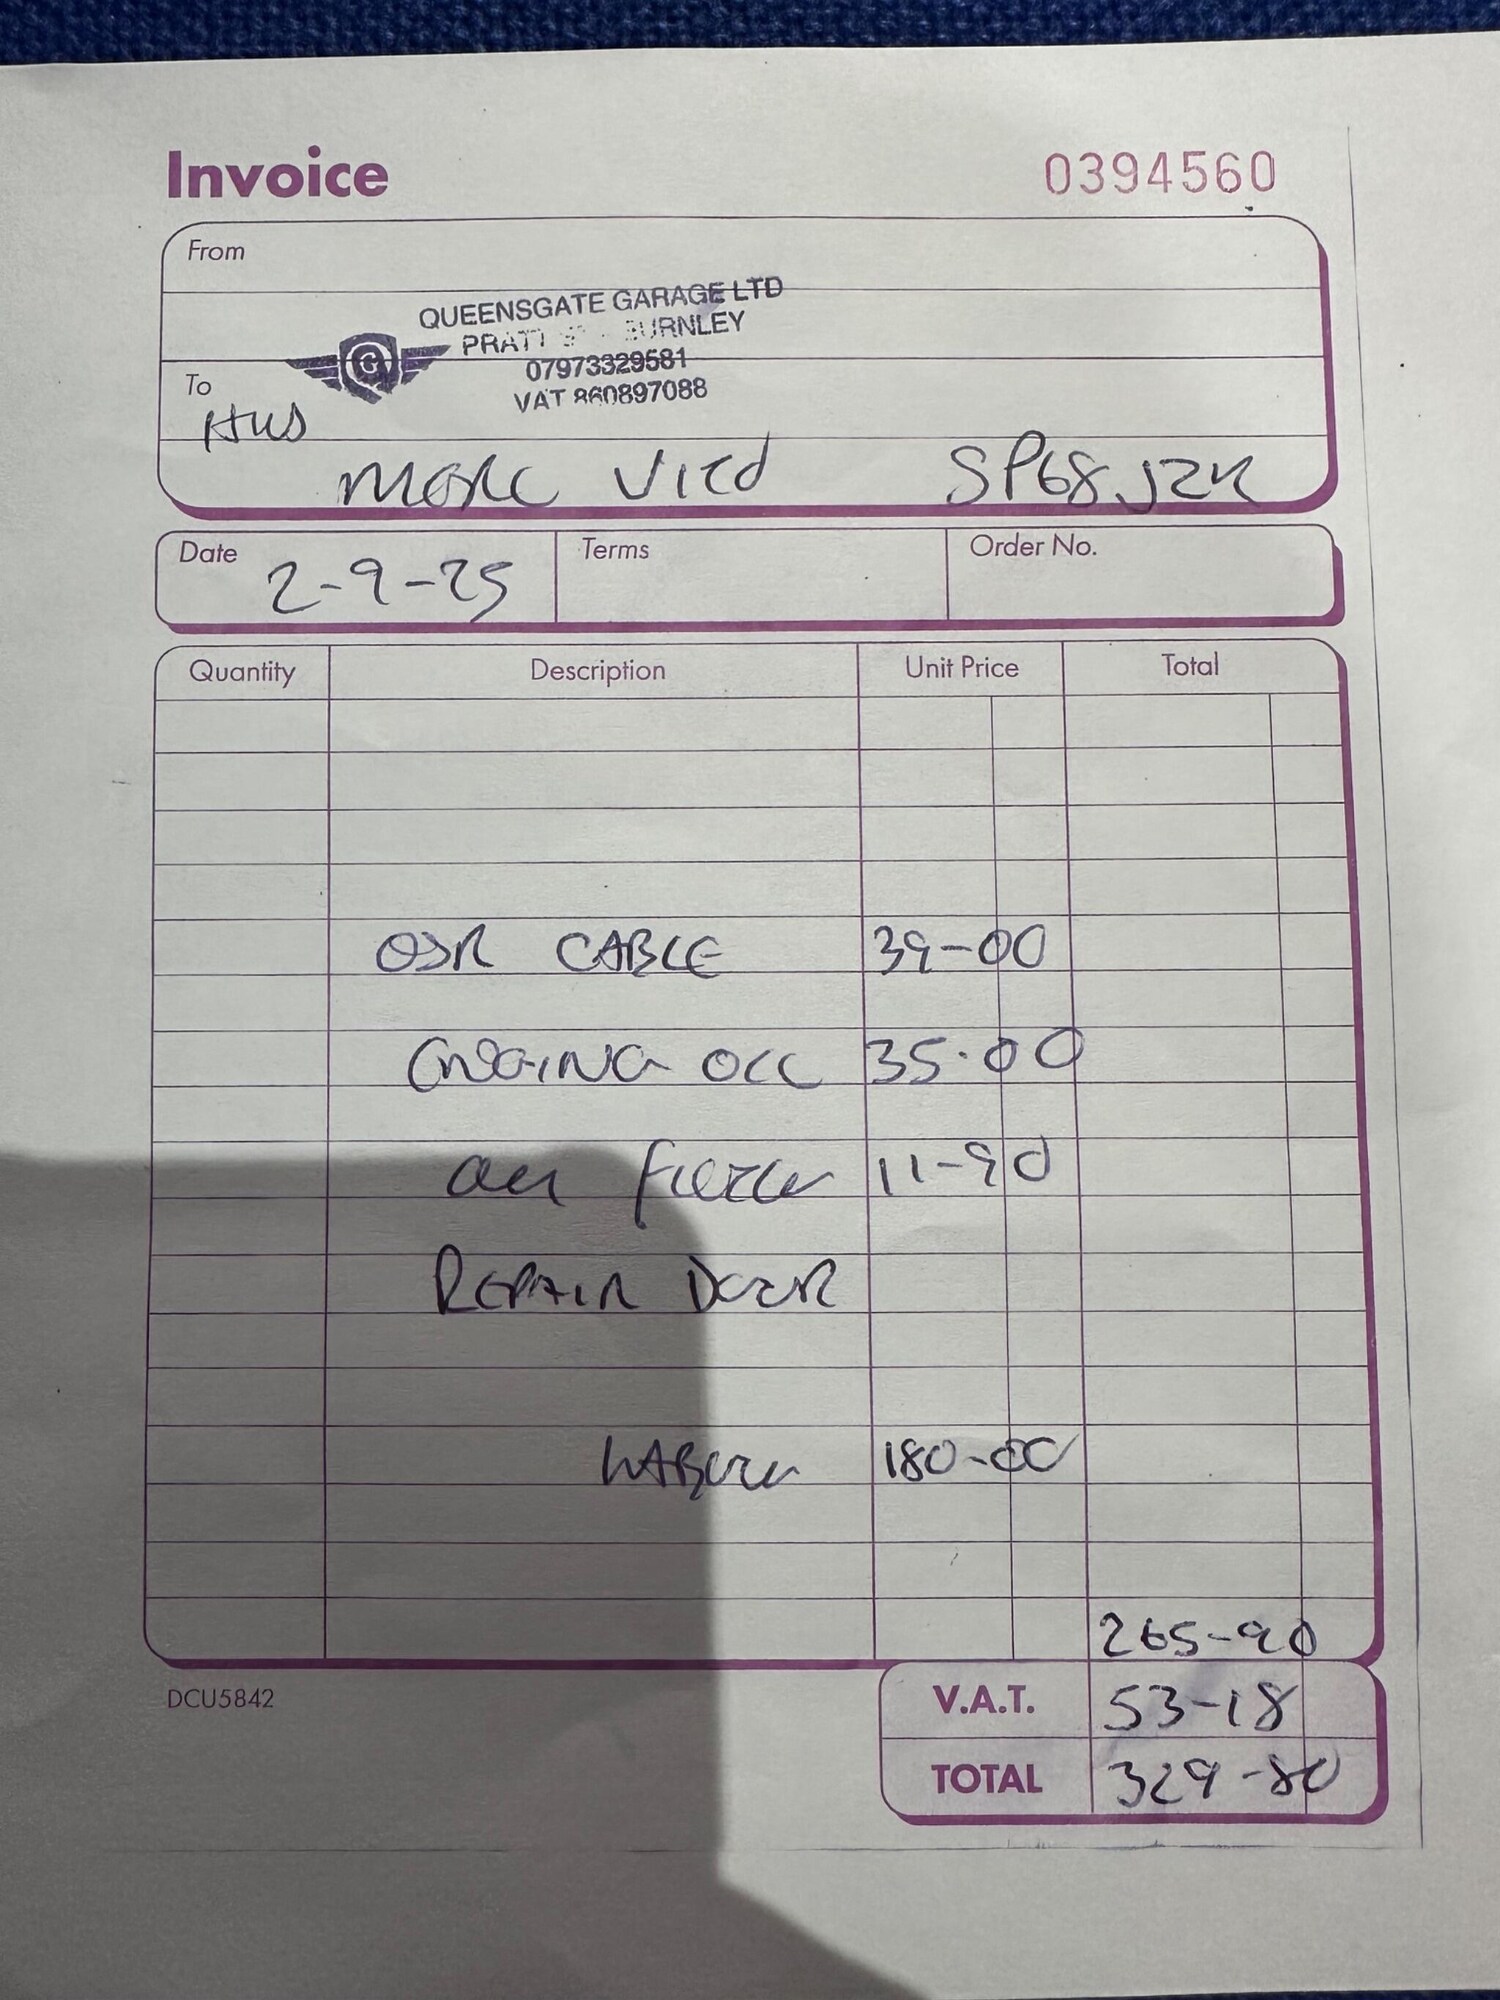 Invoice 0394560
From
QUEENSGATE GARAGE LTD
PRATT BURNLEY
07973329581
VAT 860897088
To
HWS
MERC VITO SP68 JZK
Date 2-9-25 Terms Order No.
Quantity Description Unit Price Total
OSR CABLE 39-00
ENGINE OIL 35.00
OIL FILTER 11-90
REPAIR DOOR
LABOUR 180-00
265-90
DCU5842 V.A.T. 53-18
TOTAL 329-80